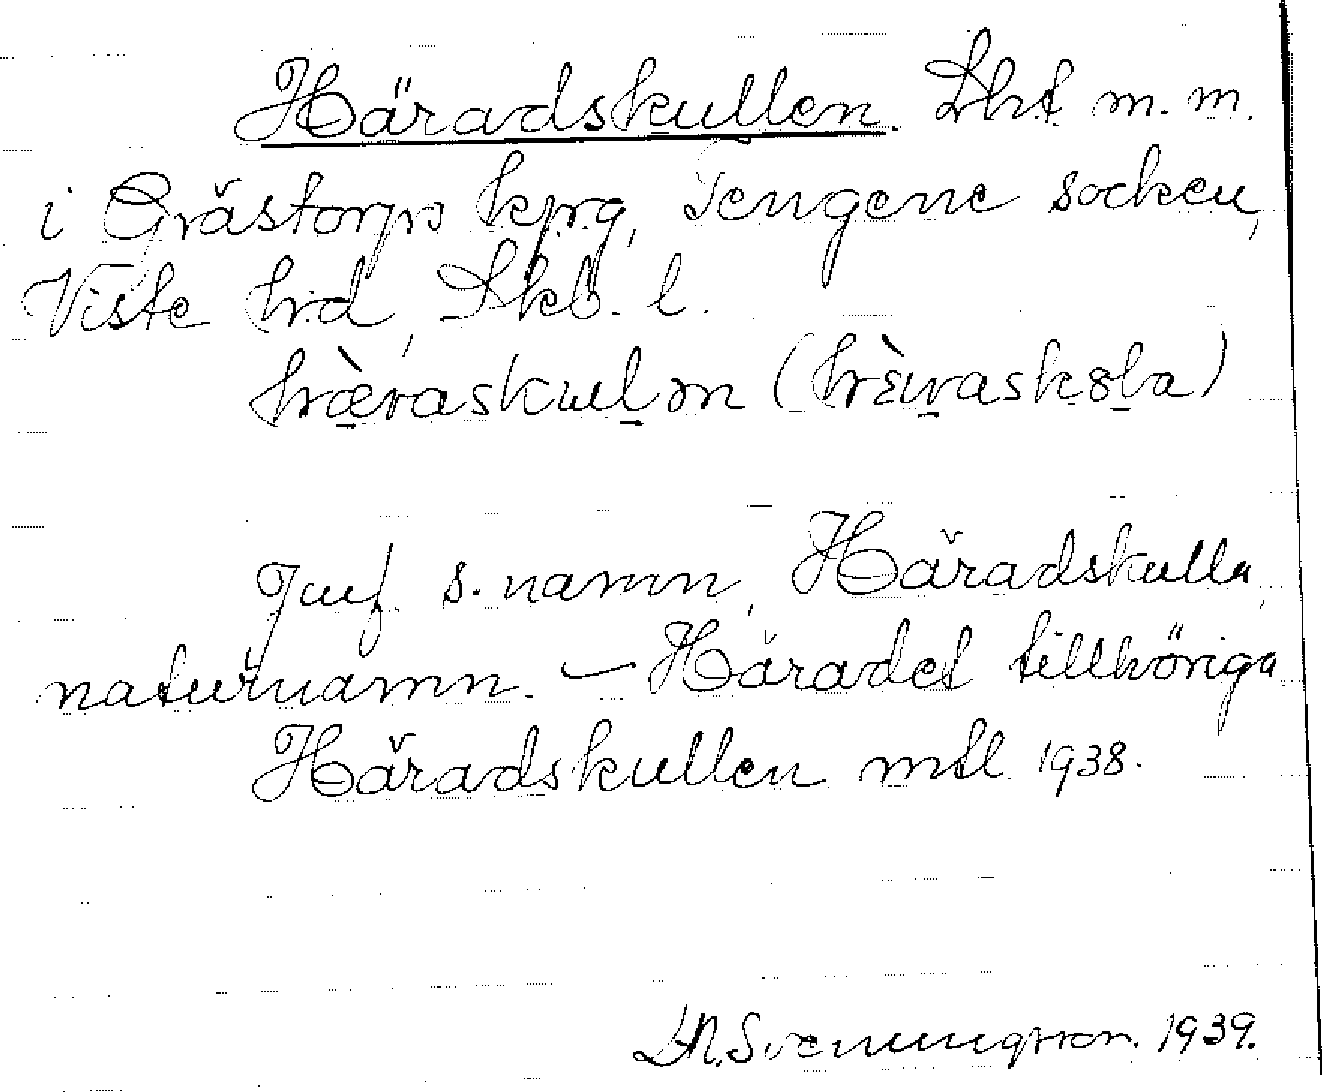 Häradskullen Lht m. m.
i Grästorps kprg, Tengene socken,
Viste hrd, Skb. l.
hæ̀raskulən (hɛ̀raskɵla)
Jmf. s. namn, Häradskulla,
naturnamn. — Häradet tillhöriga
Häradskullen mtl 1938.
Svenungsson. 1939.